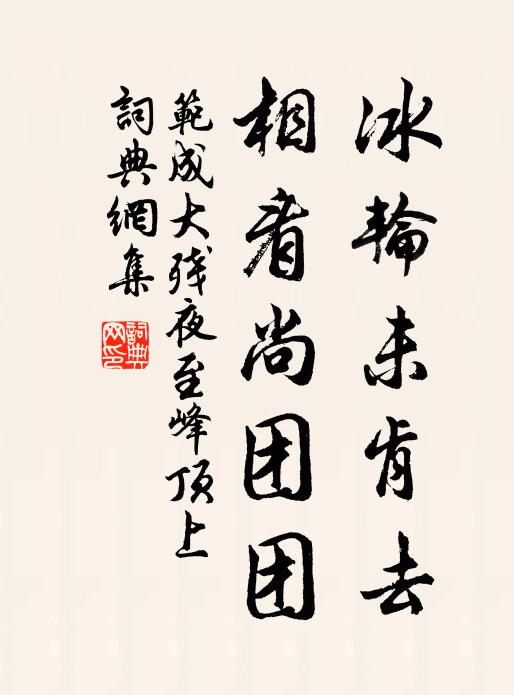 冰輪未肯去
相看尚团团
範成大残夜至峰顶上
詞典網集
詞典
网印